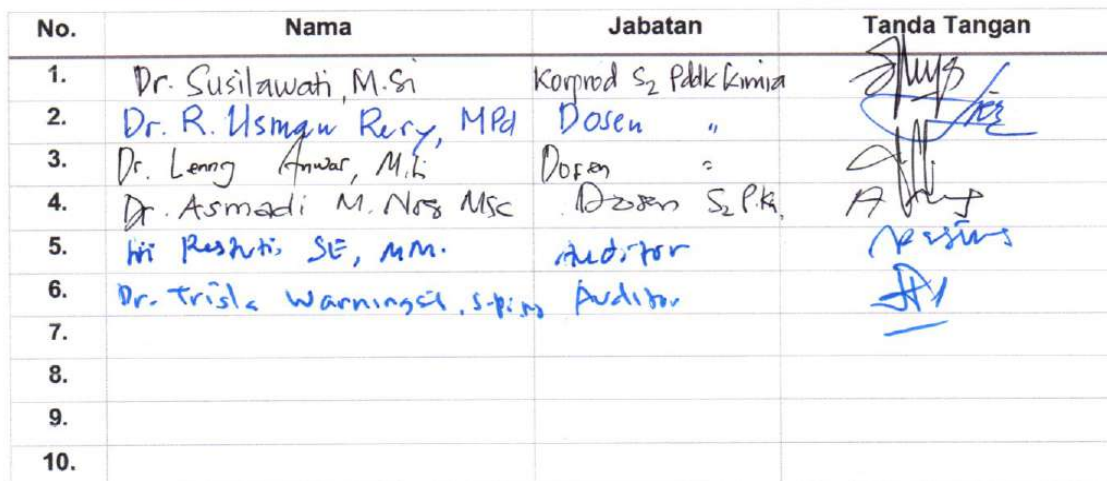 No. Nama Jabatan Tanda Tangan
1. Dr. Susilawati, M.Si Korprod S2 Pddk Kimia
2. Dr. R. Usman Rery, MPd Dosen "
3. Dr. Lenny Anwar, M.Si Dosen "
4. Dr. Asmadi M. Noer MSc Dosen S2 P.Km
5. Restuti, SE, MM. Auditor
6. Dr. Trisla Warningsih, S.Pi, Auditor
7.
8.
9.
10.